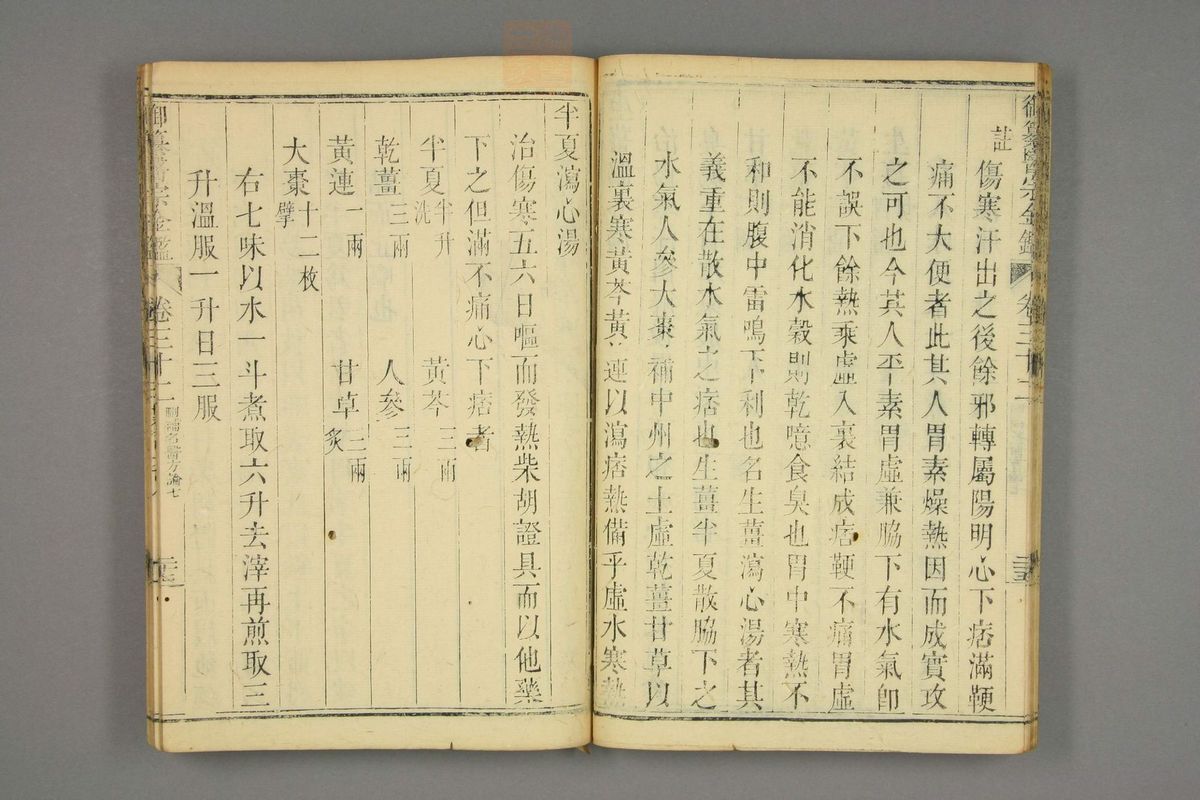 御纂醫宗金鑑 卷三十二
註
傷寒汗出之後餘邪轉屬陽明心下痞滿鞕
痛不大便者此其人胃素燥熱因而成實攻
之可也今其人平素胃虛兼脇下有水氣卽
不誤下餘熱乘虛入裏結成痞鞕不痛胃虛
不能消化水穀則乾噫食臭也胃中寒熱不
和則腹中雷鳴下利也名生薑瀉心湯者其
義重在散水氣之痞也生薑半夏散脇下之
水氣人參大棗補中州之土虛乾薑甘草以
溫裏寒黃芩黃連以瀉痞熱備乎虛水寒熱
半夏瀉心湯
治傷寒五六日嘔而發熱柴胡證具而以他藥
下之但滿不痛心下痞者
半夏半升洗 黃芩三兩
乾薑三兩 人參三兩
黃連一兩 甘草三兩炙
大棗十二枚擘
右七味以水一斗煮取六升去滓再煎取三
升溫服一升日三服
御纂醫宗金鑑 卷三十二 刪補名醫方論七